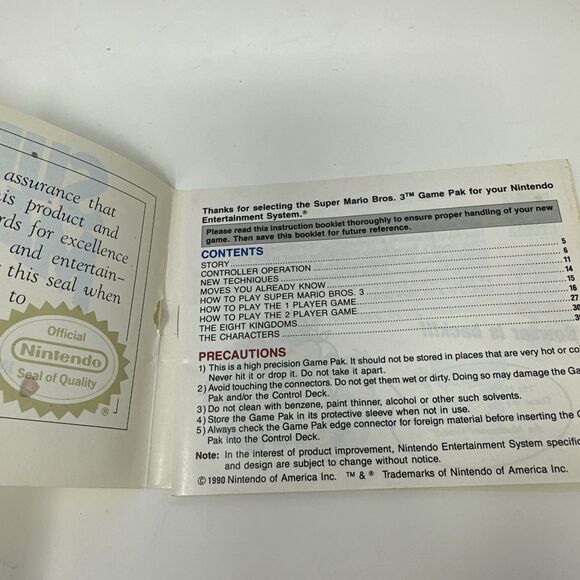 assurance that
is product and
rds for excellence
and entertain-
this seal when
to
Official
Nintendo
Seal of Quality
®
Thanks for selecting the Super Mario Bros. 3™ Game Pak for your Nintendo
Entertainment System.®
Please read this instruction booklet thoroughly to ensure proper handling of your new
game. Then save this booklet for future reference.
CONTENTS
STORY 5
CONTROLLER OPERATION 6
NEW TECHNIQUES 11
MOVES YOU ALREADY KNOW 14
HOW TO PLAY SUPER MARIO BROS. 3 15
HOW TO PLAY THE 1 PLAYER GAME 16
HOW TO PLAY THE 2 PLAYER GAME 27
THE EIGHT KINGDOMS 30
THE CHARACTERS
PRECAUTIONS
1) This is a high precision Game Pak. It should not be stored in places that are very hot or
Never hit it or drop it. Do not take it apart.
2) Avoid touching the connectors. Do not get them wet or dirty. Doing so may damage the
Pak and/or the Control Deck.
3) Do not clean with benzene, paint thinner, alcohol or other such solvents.
4) Store the Game Pak in its protective sleeve when not in use.
5) Always check the Game Pak edge connector for foreign material before inserting the
Pak into the Control Deck.
Note: In the interest of product improvement, Nintendo Entertainment System
and design are subject to change without notice.
© 1990 Nintendo of America Inc. ™ & ® Trademarks of Nintendo of America Inc.